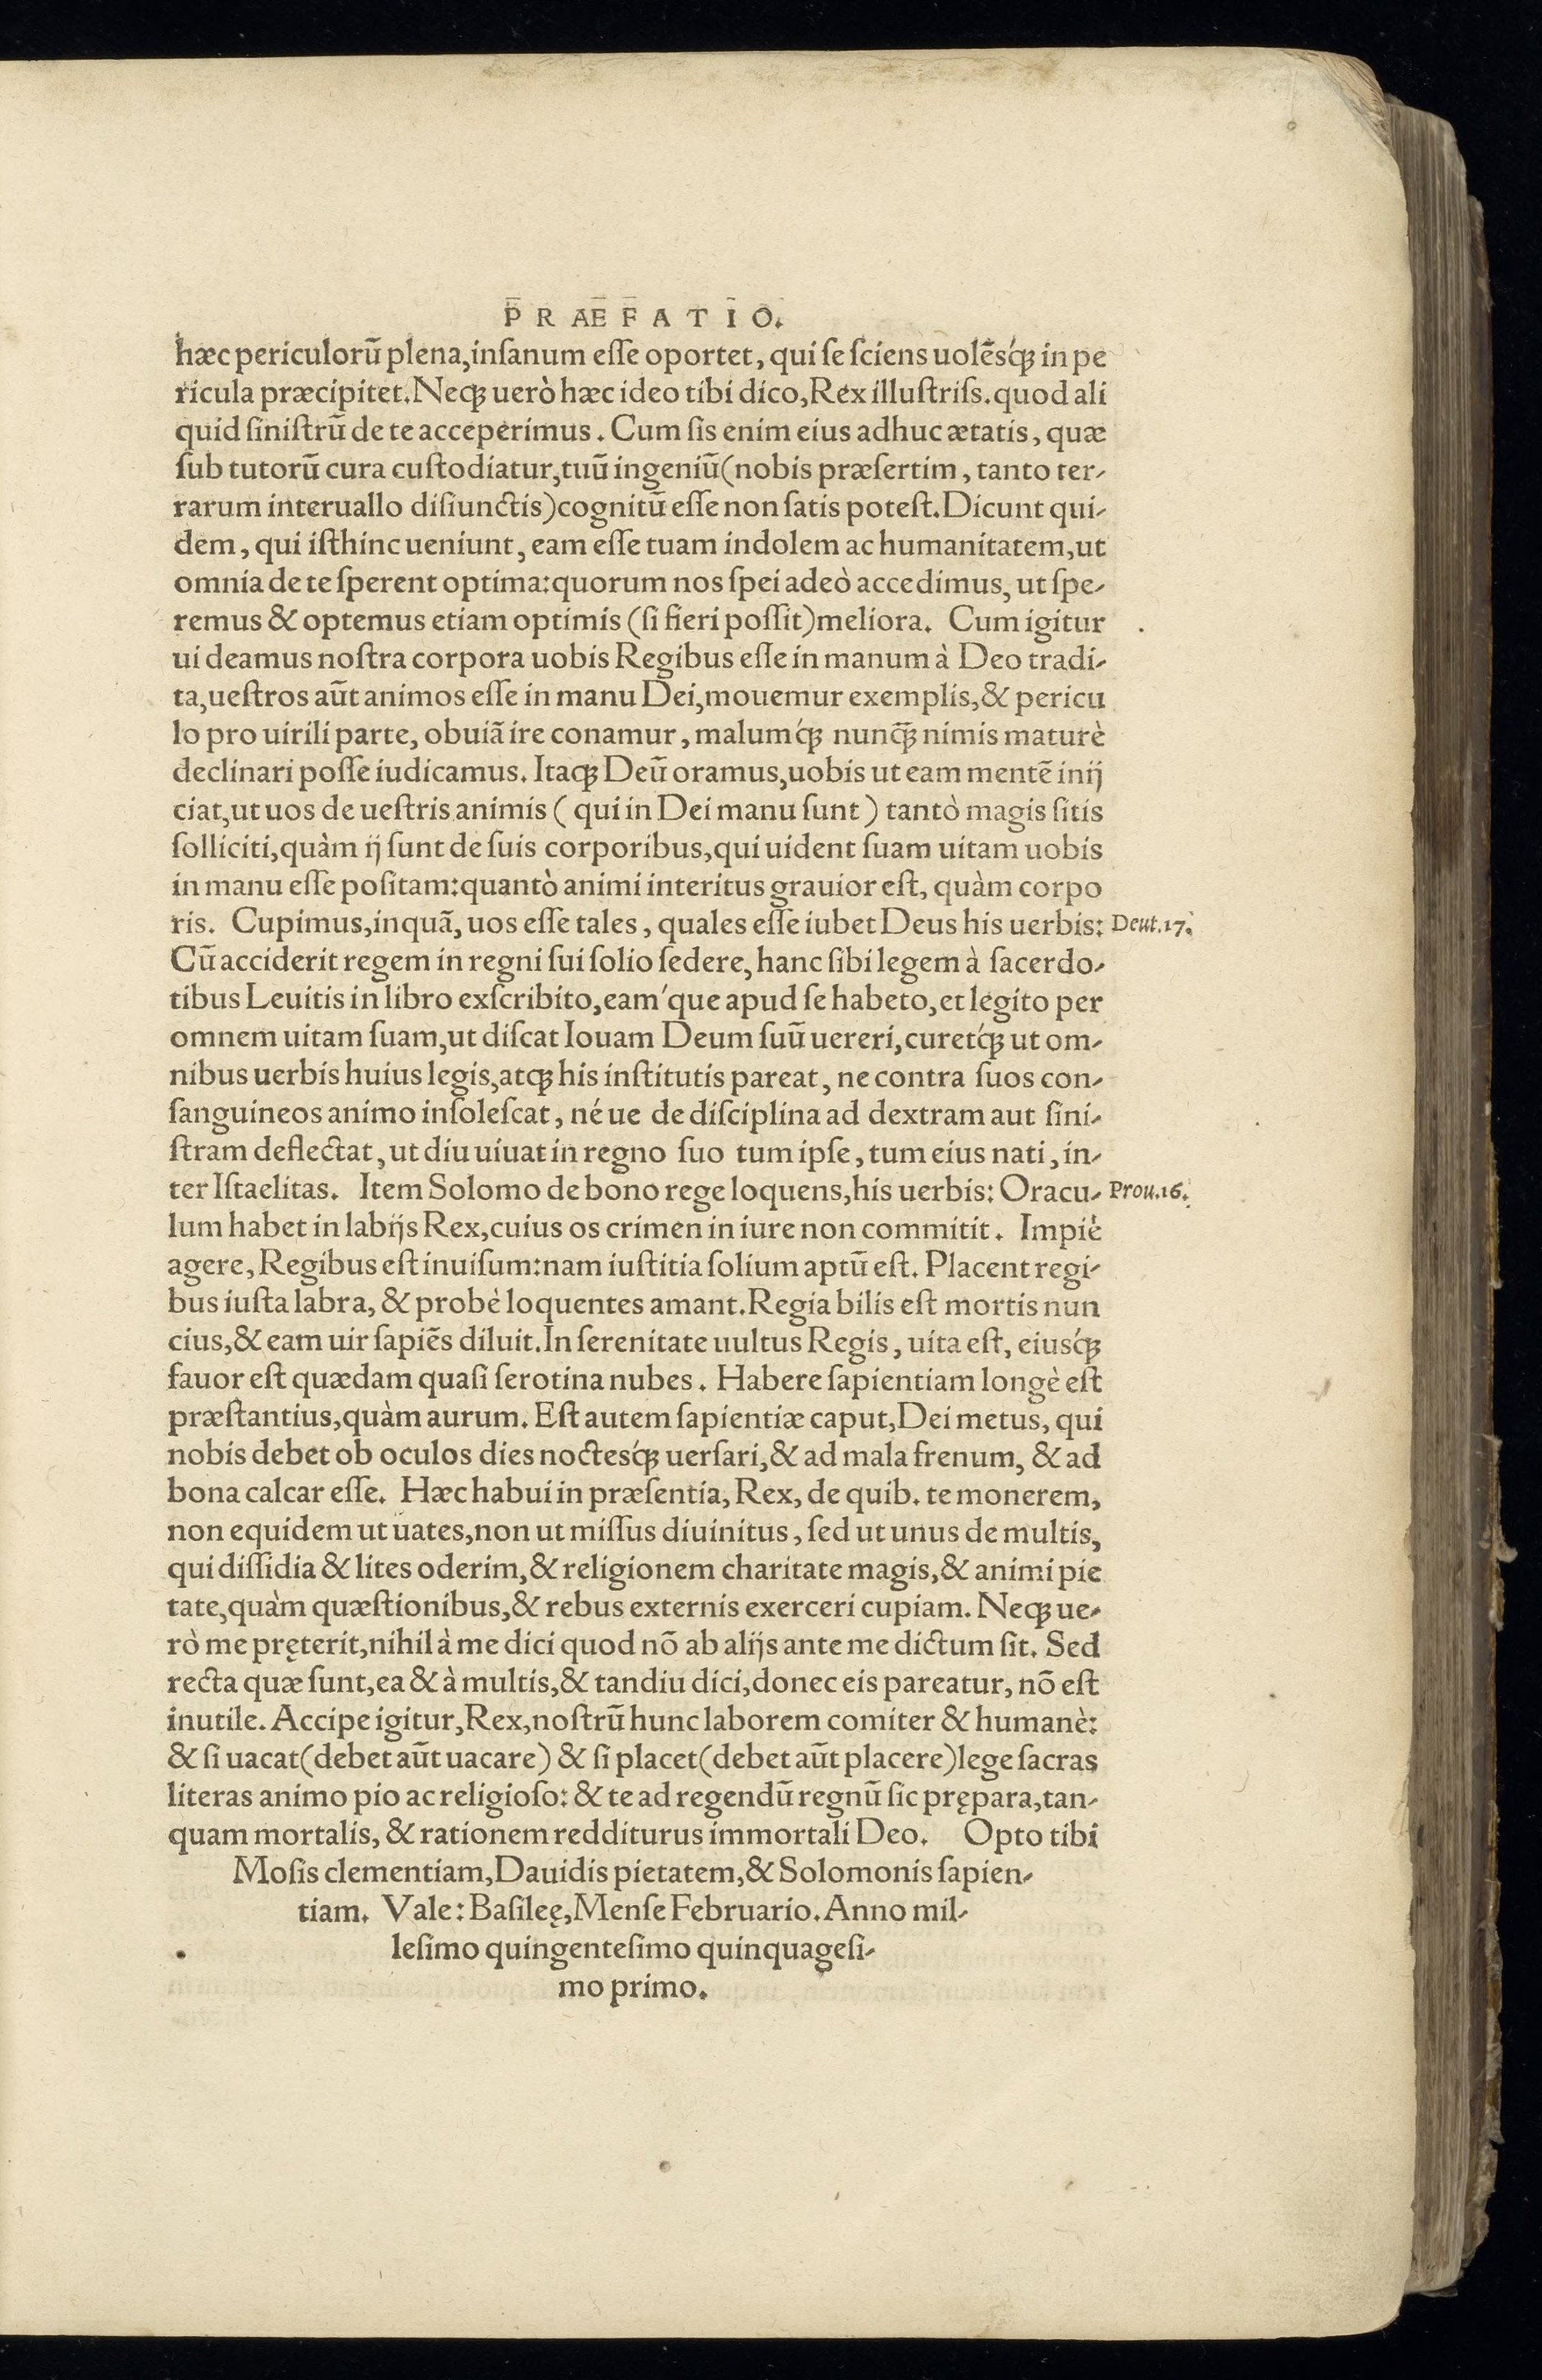 PRAEFATIO.
hæc periculorũ plena, inſanum eſſe oportet, qui ſe ſciens uolẽsq́ꝫ in pe
ricula præcipitet. Neqꝫ uerò hæc ideo tibi dico, Rex illuſtriſs. quod ali
quid ſiniſtrũ de te acceperimus. Cum ſis enim eius adhuc ætatis, quæ
ſub tutorũ cura cuſtodiatur, tuũ ingeniũ (nobis præſertim, tanto ter-
rarum interuallo diſiunctis) cognitũ eſſe non ſatis poteſt. Dicunt qui-
dem, qui iſthinc ueniunt, eam eſſe tuam indolem ac humanitatem, ut
omnia de te ſperent optima: quorum nos ſpei adeò accedimus, ut ſpe-
remus & optemus etiam optimis (ſi fieri poſſit) meliora. Cum igitur
ui deamus noſtra corpora uobis Regibus eſſe in manum à Deo tradi-
ta, ueſtros aũt animos eſſe in manu Dei, mouemur exemplis, & pericu
lo pro uirili parte, obuiã ire conamur, malumq́ꝫ nunq̃ꝫ nimis maturè
declinari poſſe iudicamus. Itaqꝫ Deũ oramus, uobis ut eam mentẽ inij
ciat, ut uos de ueſtris animis (qui in Dei manu ſunt) tantò magis ſitis
ſolliciti, quàm ij ſunt de ſuis corporibus, qui uident ſuam uitam uobis
in manu eſſe poſitam: quantò animi interitus grauior eſt, quàm corpo
ris. Cupimus, inquã, uos eſſe tales, quales eſſe iubet Deus his uerbis: Deut. 17.
Cũ acciderit regem in regni ſui ſolio ſedere, hanc ſibi legem à ſacerdo-
tibus Leuitis in libro exſcribito, eam'que apud ſe habeto, et legito per
omnem uitam ſuam, ut diſcat Iouam Deum ſuũ uereri, curetq́ꝫ ut om-
nibus uerbis huius legis, atqꝫ his inſtitutis pareat, ne contra ſuos con-
ſanguineos animo inſoleſcat, né ue de diſciplina ad dextram aut ſini-
ſtram deflectat, ut diu uiuat in regno ſuo tum ipſe, tum eius nati, in-
ter Iſtaelitas. Item Solomo de bono rege loquens, his uerbis: Oracu- Prou. 16.
lum habet in labijs Rex, cuius os crimen in iure non commitit. Impiè
agere, Regibus eſt inuiſum: nam iuſtitia ſolium aptũ eſt. Placent regi-
bus iuſta labra, & probè loquentes amant. Regia bilis eſt mortis nun
cius, & eam uir ſapiẽs diluit. In ſerenitate uultus Regis, uita eſt, eiusq́ꝫ
fauor eſt quædam quaſi ſerotina nubes. Habere ſapientiam longè eſt
præſtantius, quàm aurum. Eſt autem ſapientiæ caput, Dei metus, qui
nobis debet ob oculos dies noctesq́ꝫ uerſari, & ad mala frenum, & ad
bona calcar eſſe. Hæc habui in præſentia, Rex, de quib. te monerem,
non equidem ut uates, non ut miſſus diuinitus, ſed ut unus de multis,
qui diſſidia & lites oderim, & religionem charitate magis, & animi pie
tate, quàm quæſtionibus, & rebus externis exerceri cupiam. Neqꝫ ue-
rò me pręterit, nihil à me dici quod nõ ab alijs ante me dictum ſit. Sed
recta quæ ſunt, ea & à multis, & tandiu dici, donec eis pareatur, nõ eſt
inutile. Accipe igitur, Rex, noſtrũ hunc laborem comiter & humanè:
& ſi uacat (debet aũt uacare) & ſi placet (debet aũt placere) lege ſacras
literas animo pio ac religioſo: & te ad regendũ regnũ ſic prępara, tan-
quam mortalis, & rationem redditurus immortali Deo. Opto tibi
Moſis clementiam, Dauidis pietatem, & Solomonis ſapien-
tiam. Vale: Baſileę, Menſe Februario. Anno mil-
leſimo quingenteſimo quinquageſi-
mo primo.